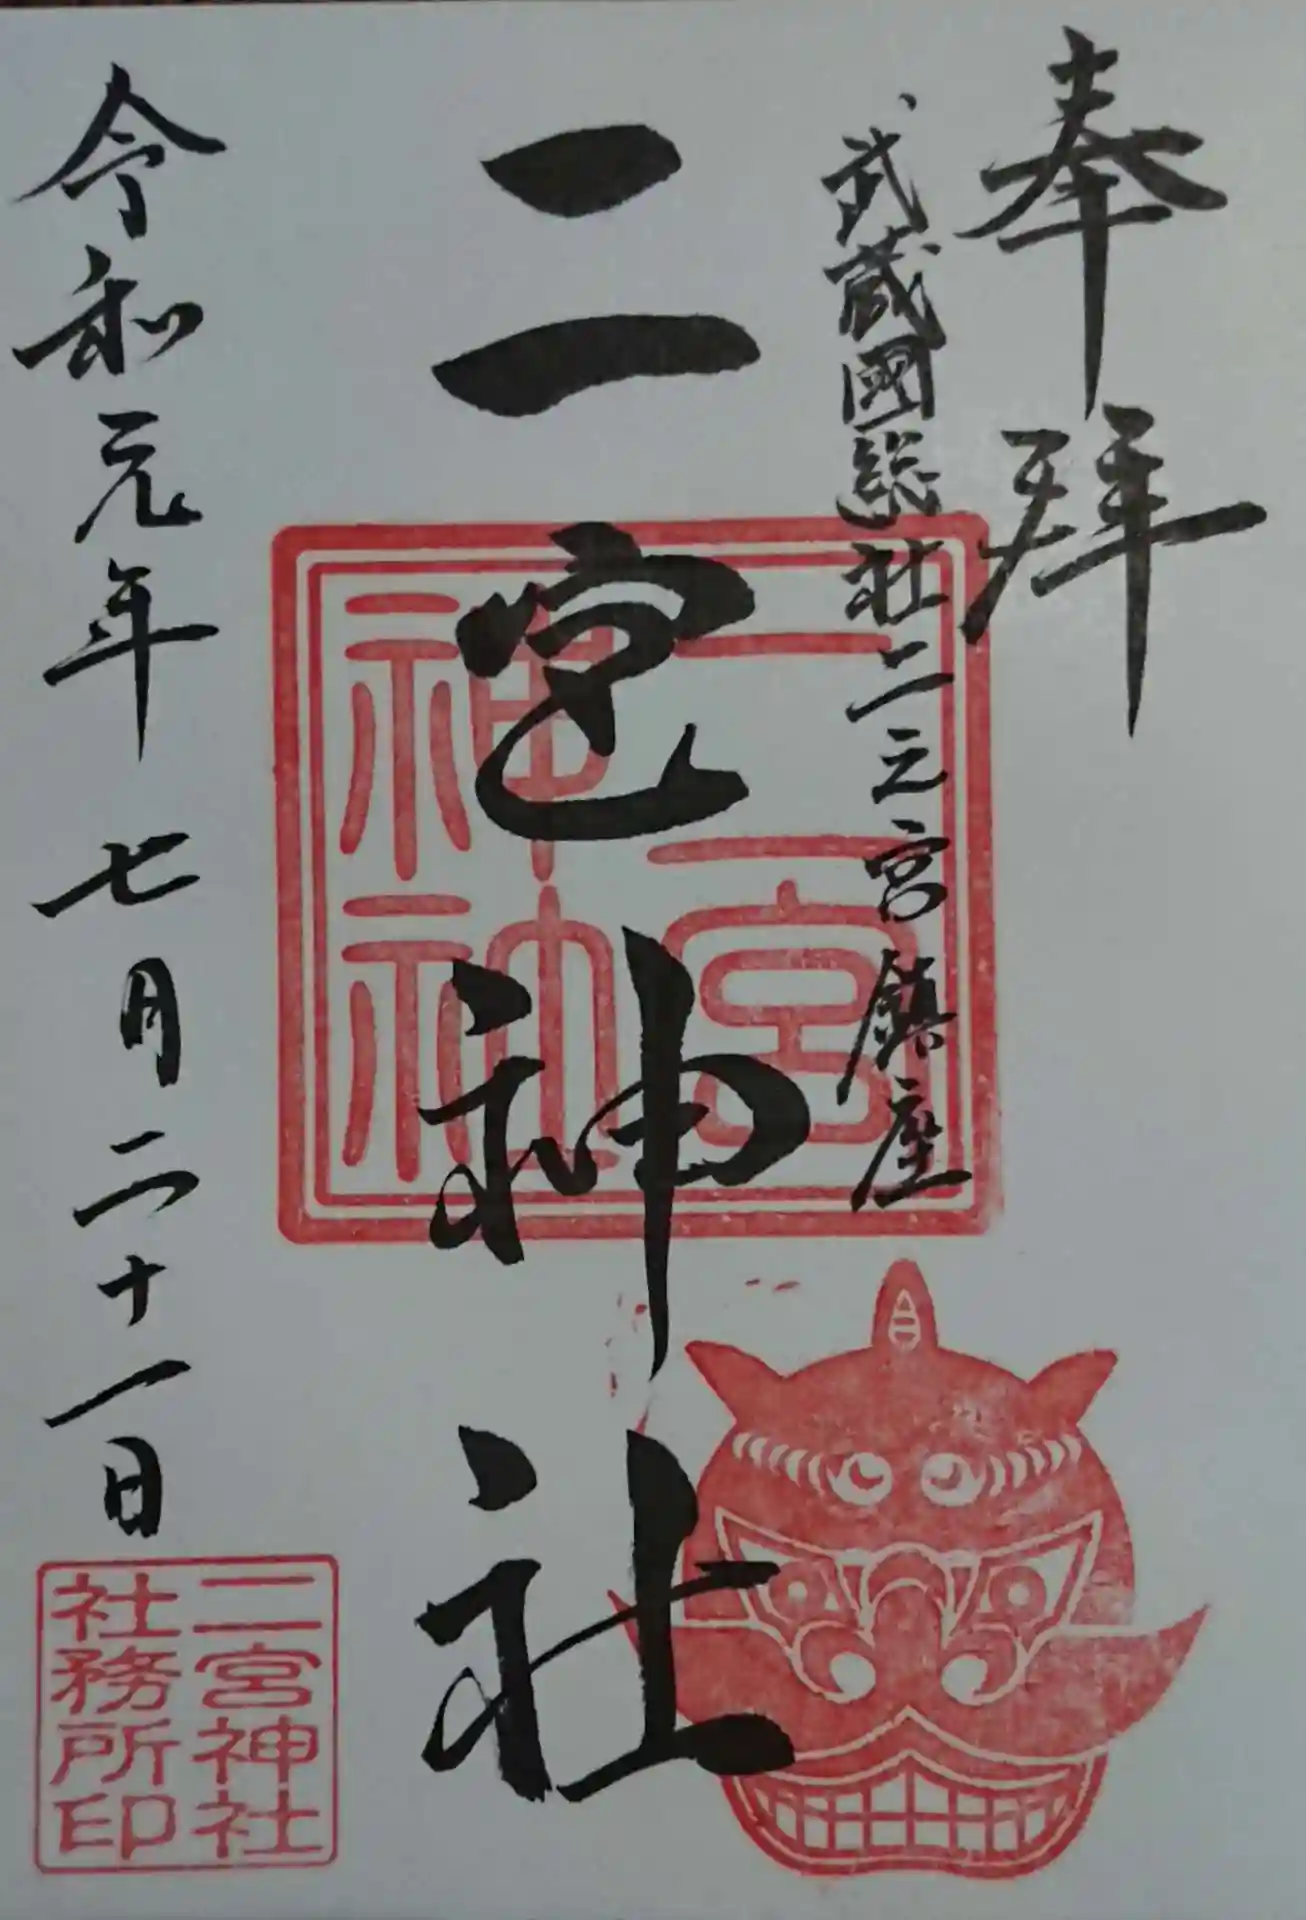 奉拝
武蔵國総社二之宮鎮座
二宮神社
令和元年七月二十一日
二宮神社
二宮神社
社務所印